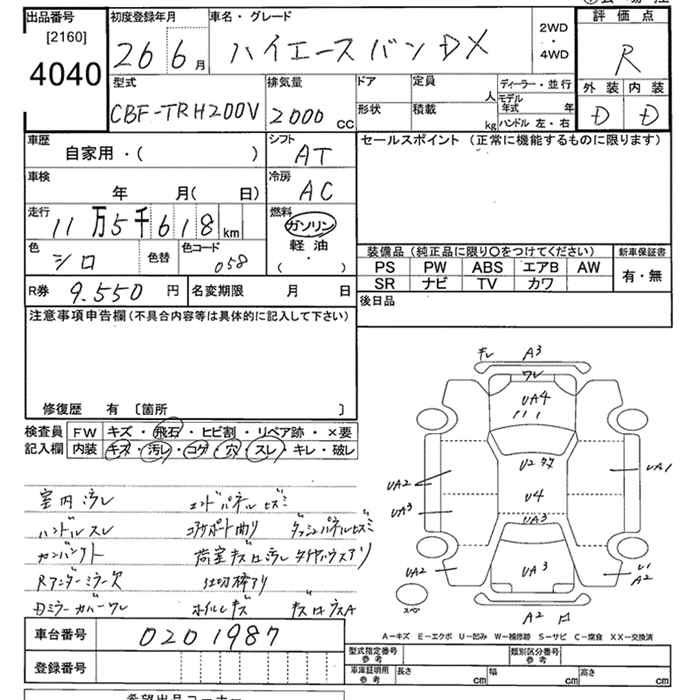 出品番号 初度登録年月 車名・グレード 2WD・4WD 評価点
[2160]
4040 26 6月 ハイエースバンDX R
型式 排気量 ドア 定員 人 ディーラー・並行 外装 内装
CBF-TRH200V 2000 cc 形状 積載 kg モデル年式 年 ハンドル 左・右 D D
車歴 自家用・( ) シフト AT セールスポイント (正常に機能するものに限ります)
車検 年 月( 日) 冷房 AC
走行 11万5千618km 燃料 ガソリン
軽油
( ・ )
色 シロ 色替 色コード 058
装備品(純正品に限り○をつけてください) 新車保証書
PS PW ABS エアB AW 有・無
SR ナビ TV カワ
R券 9.550円 名変期限 月 日 後日品
注意事項申告欄(不具合内容等は具体的に記入して下さい)
修復歴 有 〔箇所 〕
検査員 FW キズ・飛石・ヒビ割・リペア跡・×要
記入欄 内装 キズ・汚レ・コゲ・穴・スレ・キレ・破レ
キレ A3
ワレ
UA4
U2
UA2 U4 UA1
UA3 UA3
UA2 UA3 U1
A2
スペ A2
室内汚レ エンドパネルヒズミ
ハンドルスレ コアサポート曲リ ダッシュパネルヒズミ
荷室キズ凹汚レ タイヤハウスサリ
Rアンダーミラー欠 仕切棒アリ
Dミラーカバーワレ ホイルキズ
車台番号 0201987
登録番号
A-キズ E-エクボ U-凹み W-補修跡 S-サビ C-腐食 XX-交換済
型式指定番号 参考 類別区分番号 参考
車庫証明用 参考 長さ cm 幅 cm 高さ cm
希望出品コーナー